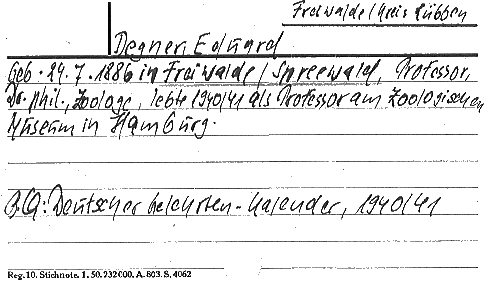 Freiwalde/Kreis Lübben
Degner, Eduard
Geb. 24.7.1886 in Freiwalde/Spreewald, Professor,
Dr. phil., Zoologe, lebte 1940/41 als Professor am Zoologischen
Museum in Hamburg.
B.Q: Deutscher Gelehrten-Kalender, 1940/41
Reg. 10. Stichnote. 1. 50. 232000. A. 803. S. 4062